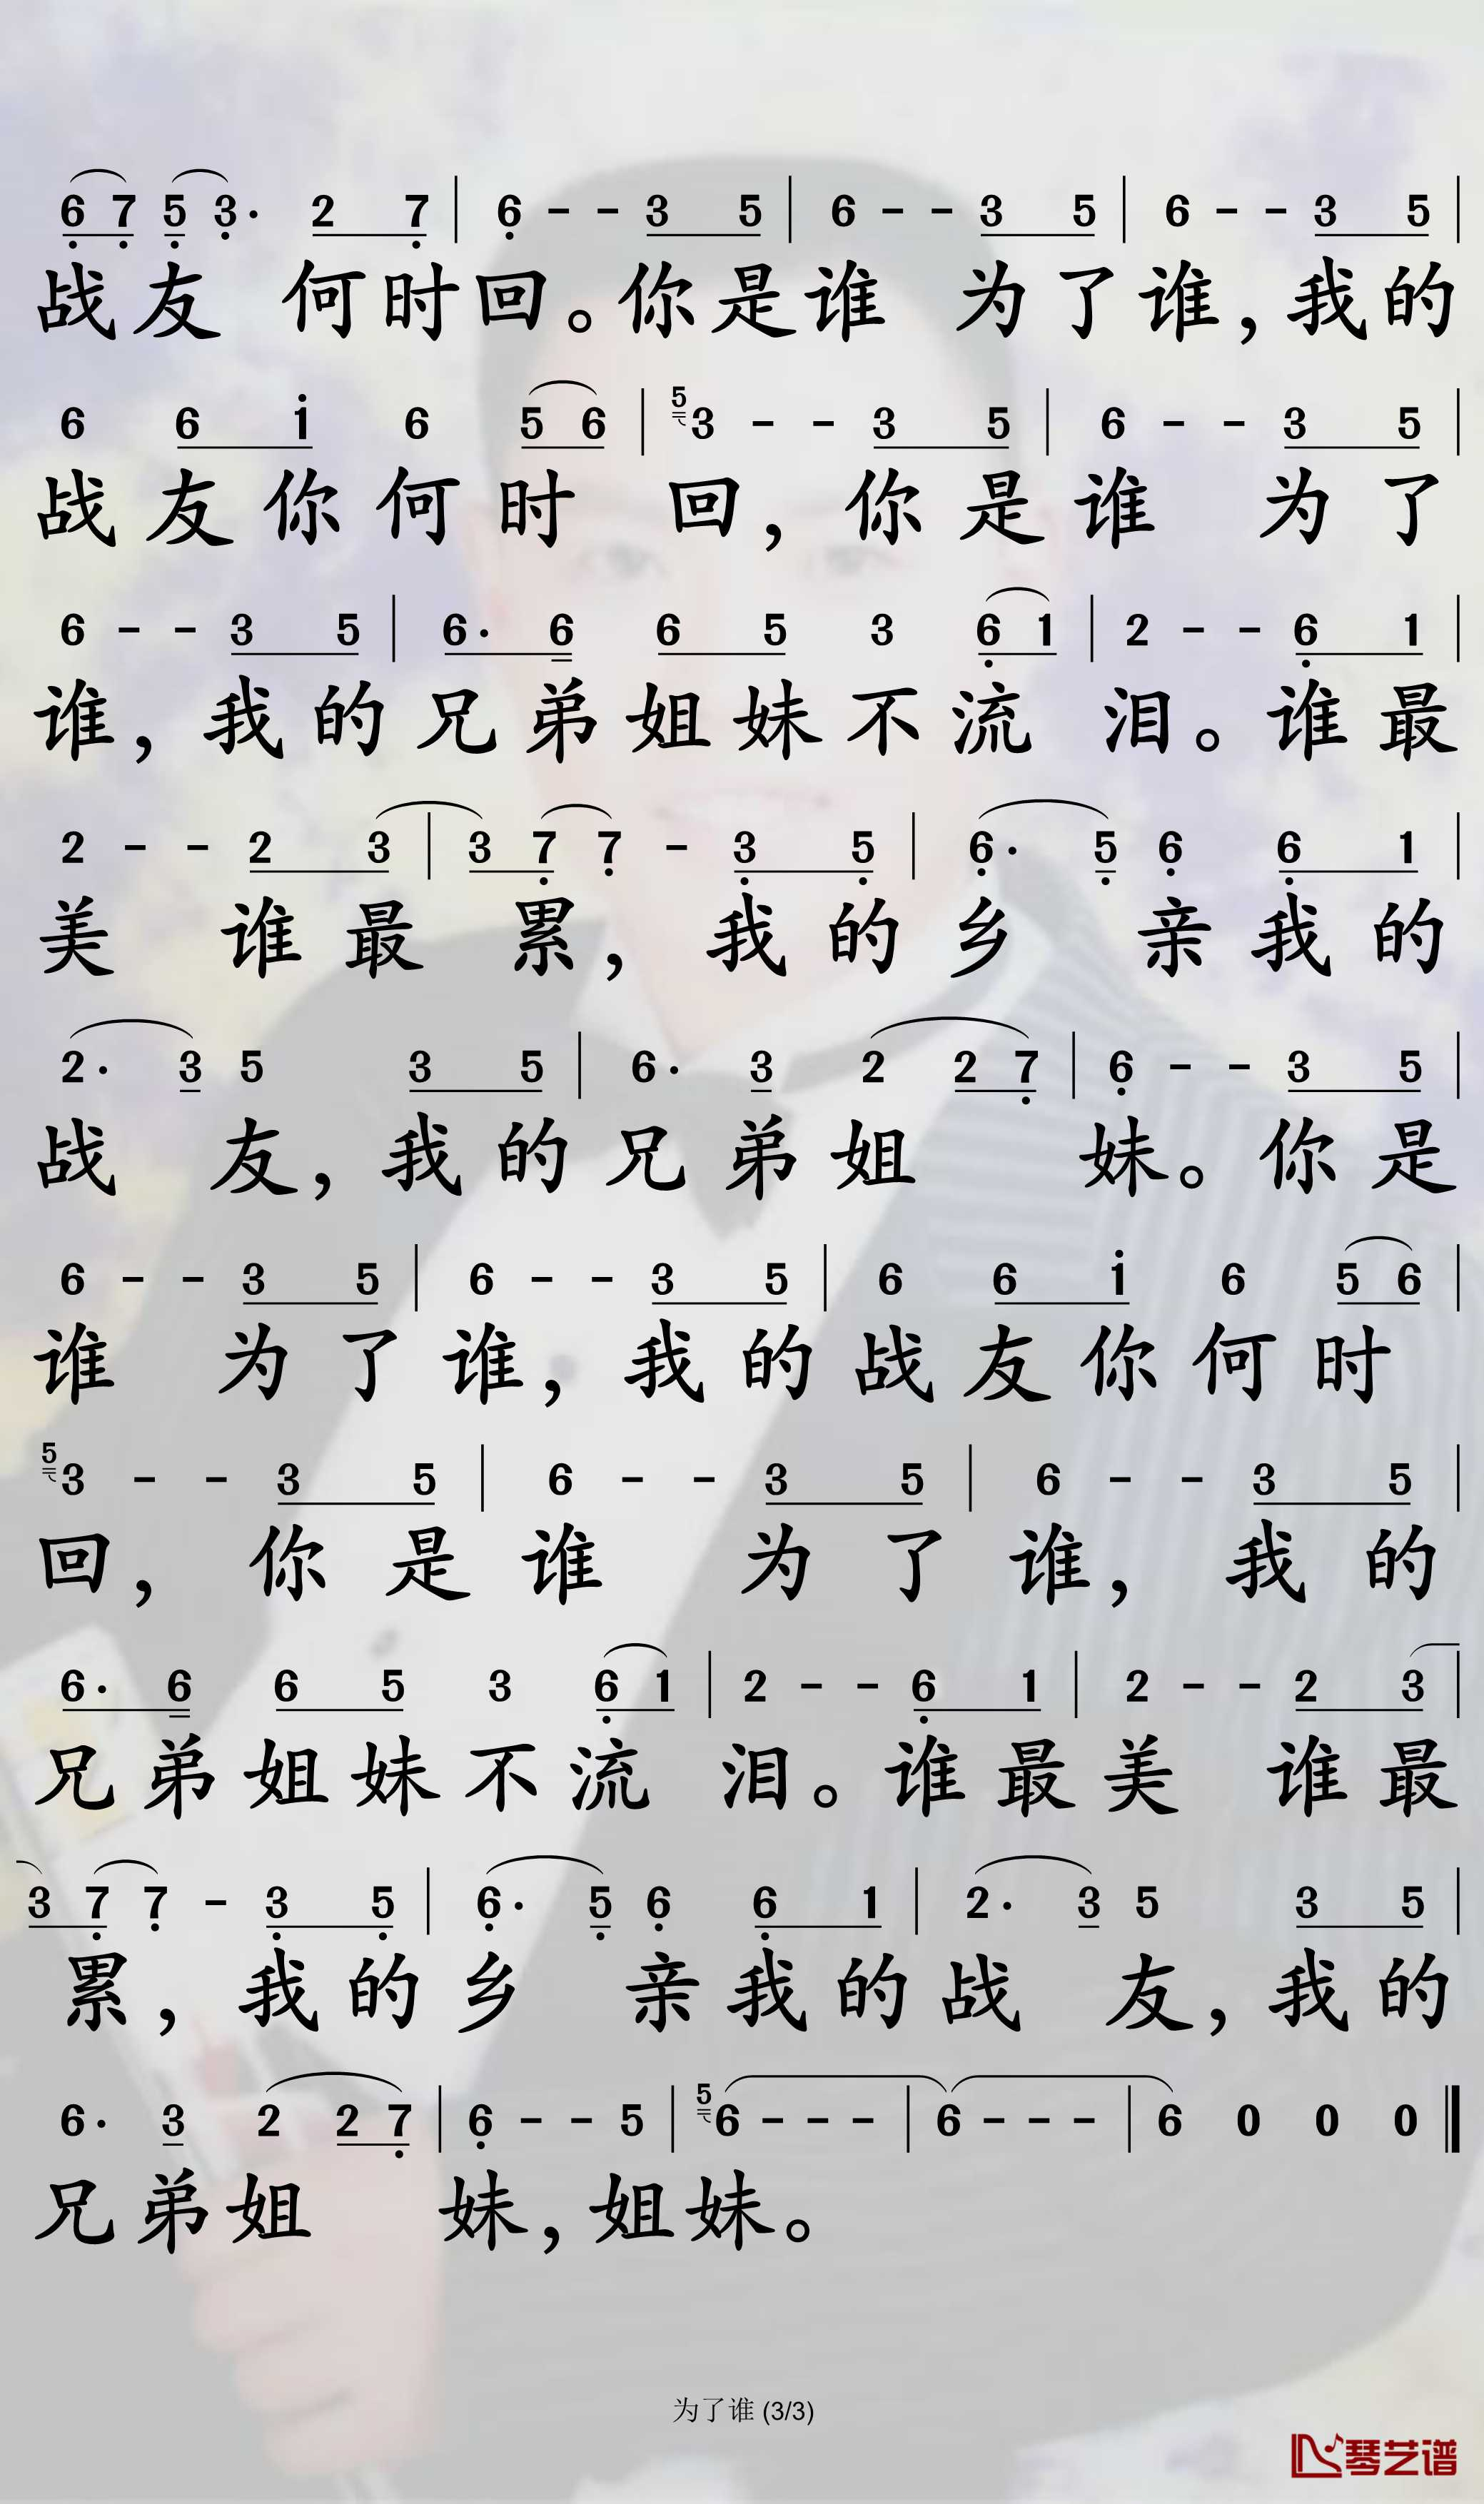 6 7 5 3· 2 7 | 6 - - 3 5 | 6 - - 3 5 | 6 - - 3 5 |
战友 何时回。你是谁 为了谁，我的
6 6 i 6 5 6 | 5 3 - - 3 5 | 6 - - 3 5 |
战友你何时 回，你是谁 为了
6 - - 3 5 | 6· 6 6 5 3 6 1 | 2 - - 6 1 |
谁，我的兄弟姐妹不流 泪。谁最
2 - - 2 3 | 3 7 7 - 3 5 | 6· 5 6 6 1 |
美 谁最 累，我的乡 亲我的
2· 3 5 3 5 | 6· 3 2 2 7 | 6 - - 3 5 |
战 友，我的兄弟姐 妹。你是
6 - - 3 5 | 6 - - 3 5 | 6 6 i 6 5 6 |
谁 为了谁，我的战友你何时
5 3 - - 3 5 | 6 - - 3 5 | 6 - - 3 5 |
回，你是谁 为了谁，我的
6· 6 6 5 3 6 1 | 2 - - 6 1 | 2 - - 2 3 |
兄弟姐妹不流 泪。谁最美 谁最
3 7 7 - 3 5 | 6· 5 6 6 1 | 2· 3 5 3 5 |
累，我的乡 亲我的战 友，我的
6· 3 2 2 7 | 6 - - 5 | 5 6 - - - | 6 - - - | 6 0 0 0 ‖
兄弟姐 妹，姐妹。
为了谁 (3/3)
琴艺谱